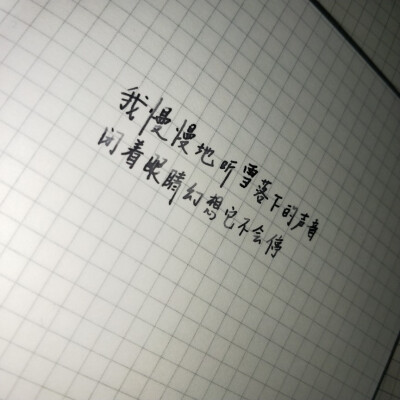 我慢慢地听雪落下的声音
闭着眼睛幻想它不会停